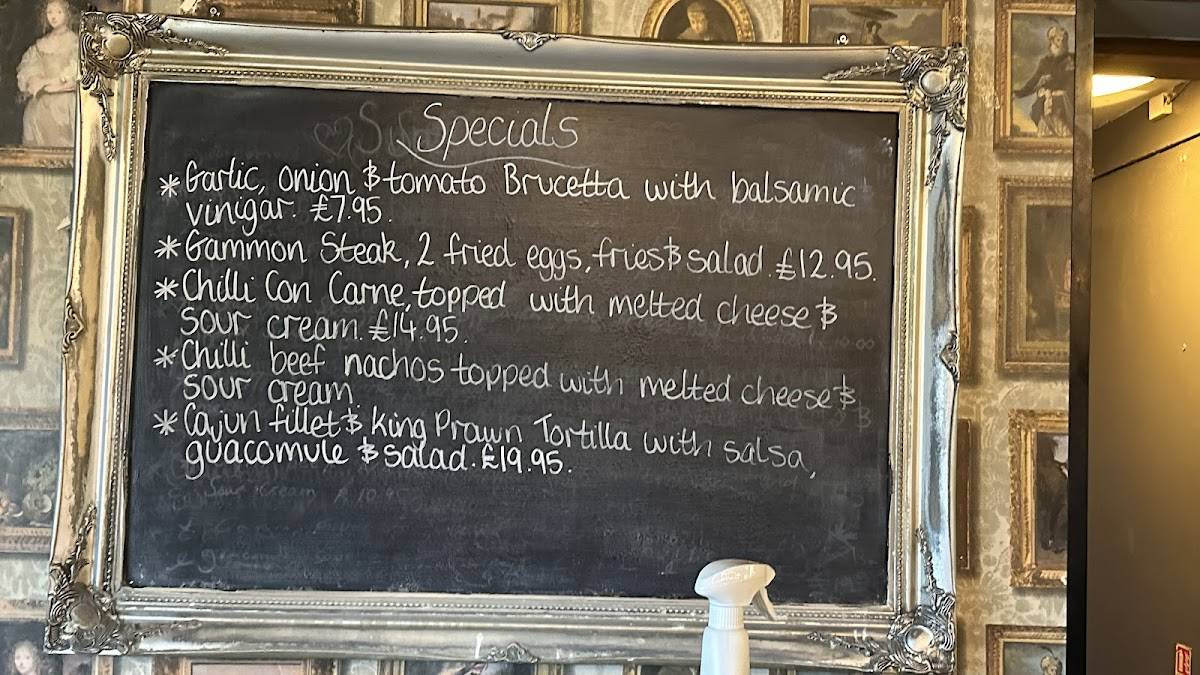 Specials
* Garlic, onion & tomato Brucetta with balsamic
vinigar. £7.95.
* Gammon Steak, 2 fried eggs, fries & salad. £12.95.
* Chilli Con Carne, topped with melted cheese &
sour cream. £14.95.
* Chilli beef nachos topped with melted cheese &
sour cream
* Cajun fillet & king Prawn Tortilla with salsa,
guacomule & salad. £19.95.